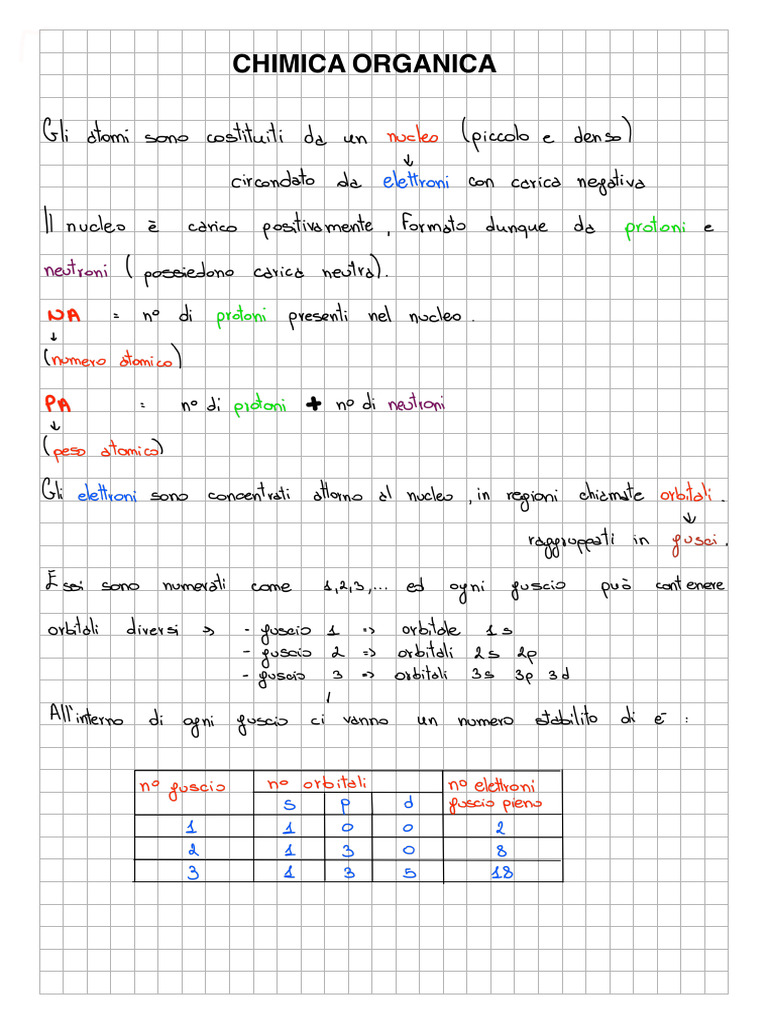 CHIMICA ORGANICA
Gli atomi sono costituiti da un nucleo (piccolo e denso)
↓
circondato da elettroni con carica negativa
Il nucleo è carico positivamente, formato dunque da protoni e
neutroni (possiedono carica neutra).
NA = n° di protoni presenti nel nucleo.
↓
(numero atomico)
PA = n° di protoni + n° di neutroni
↓
(peso atomico)
Gli elettroni sono concentrati attorno al nucleo, in regioni chiamate orbitali.
↓
raggruppati in gusci.
Essi sono numerati come 1,2,3,... ed ogni guscio può contenere
orbitali diversi => - guscio 1 => orbitale 1s
- guscio 2 => orbitali 2s 2p
- guscio 3 => orbitali 3s 3p 3d
All'interno di ogni guscio ci vanno un numero stabilito di e⁻ :
n° guscio n° orbitali n° elettroni
s p d guscio pieno
1 1 0 0 2
2 1 3 0 8
3 1 3 5 18